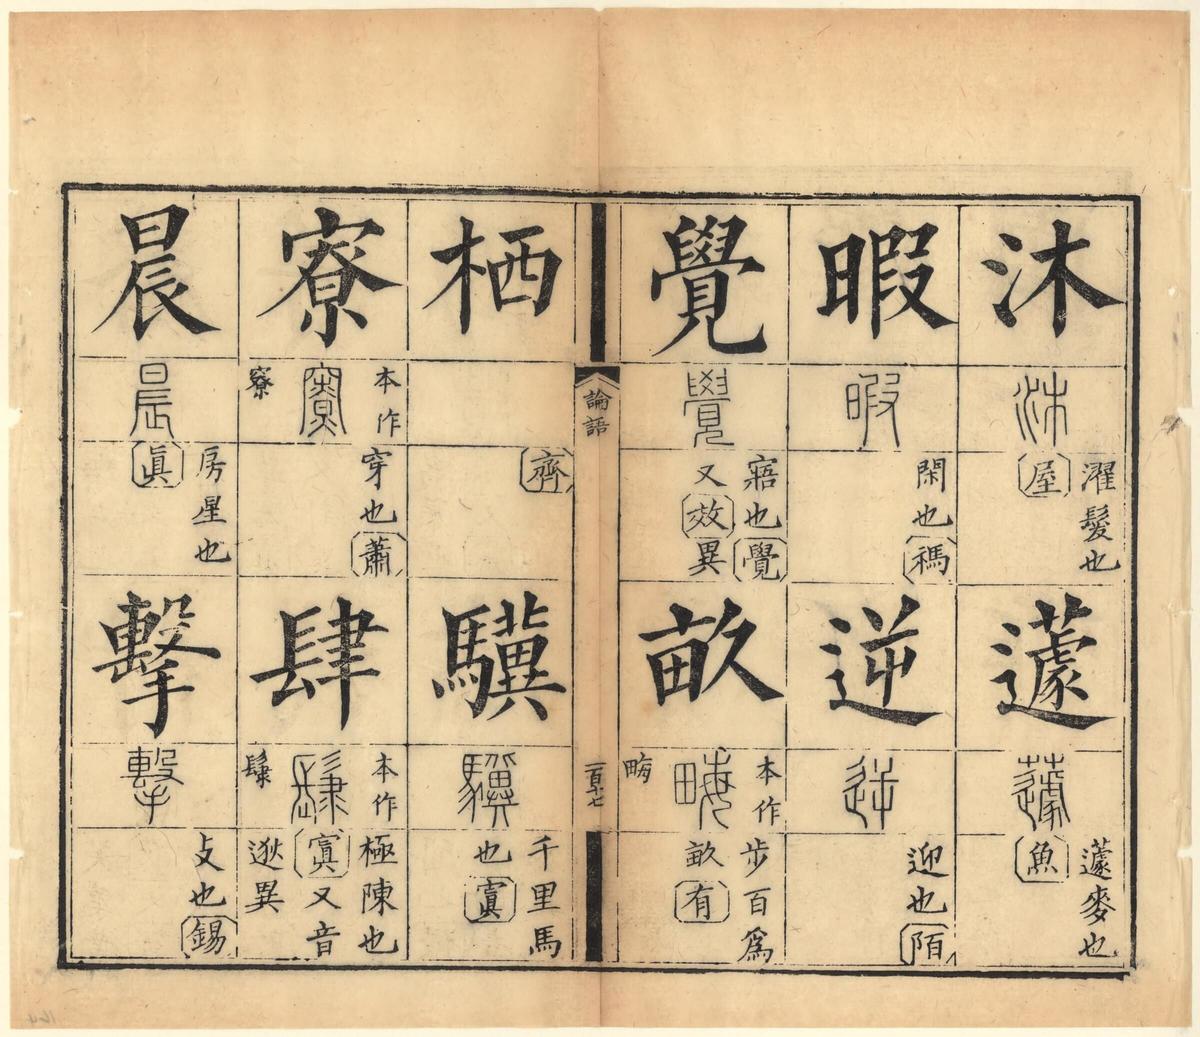 沐
沐
濯髮也
屋
蘧
蘧
蘧麥也
魚
暇
暇
閑也禡
逆
逆
迎也陌
覺
覺
寤也覺
又效異
畝
本作
畮
畮
步百爲
畝有
論語
一百十七
栖
齊
驥
驥
千里馬
也寘
寮
本作
竂
竂
穿也蕭
肆
本作
肆
極陳也
寘又音
逖異
晨
晨
房星也
眞
擊
擊
攴也錫